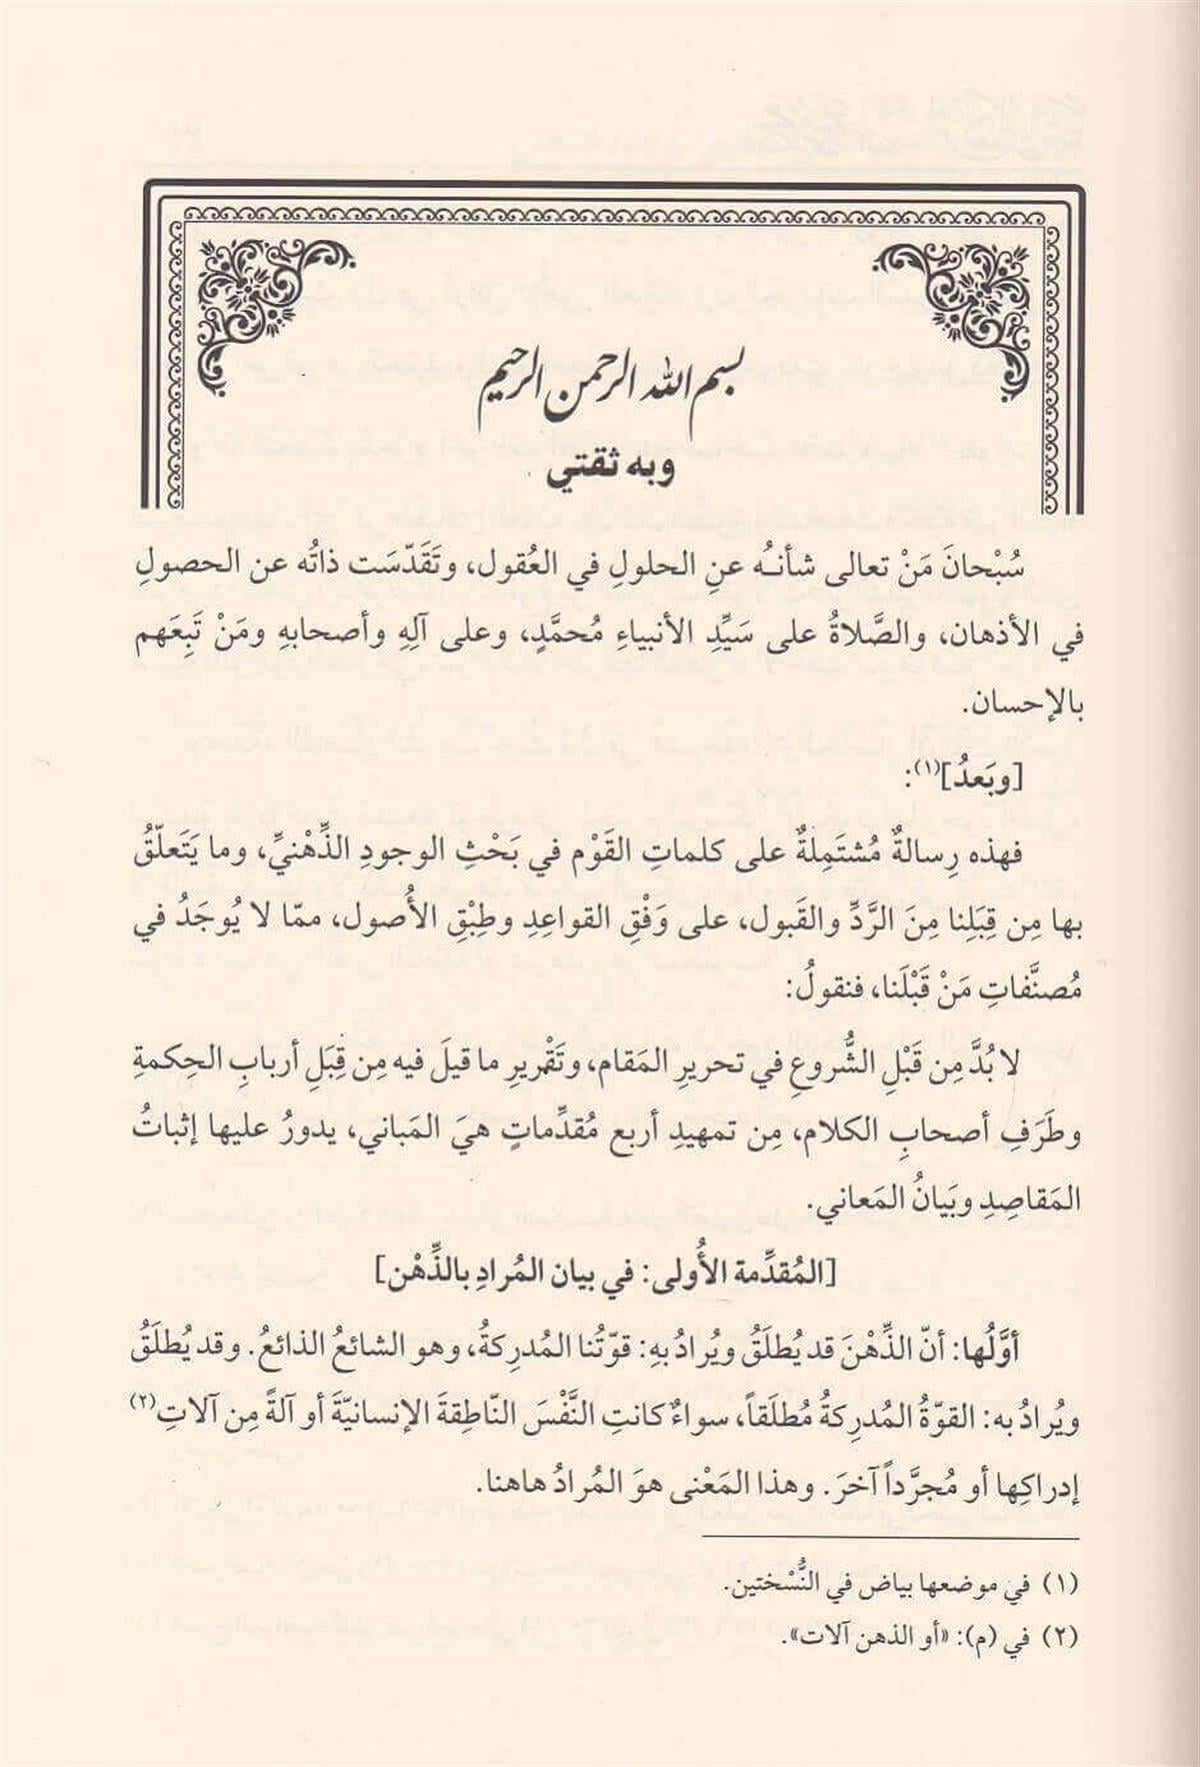 بسم الله الرحمن الرحيم
وبه ثقتي
سُبْحانَ مَنْ تعالى شأنـُه عنِ الحلولِ في العُقول، وتَقَدّسَت ذاتُه عن الحصولِ
في الأذهان، والصَّلاةُ على سَيِّدِ الأنبياءِ مُحمَّدٍ، وعلى آلِهِ وأصحابهِ ومَنْ تَبِعَهم
بالإحسان.
[وبَعدُ](١):
فهذه رِسالةٌ مُشتَمِلةٌ على كلماتِ القَوْم في بَحْثِ الوجودِ الذِّهْنيِّ، وما يَتَعلّقُ
بها مِن قِبَلِنا مِنَ الرَّدِّ والقَبول، على وَفْقِ القواعِدِ وطِبْقِ الأُصول، ممّا لا يُوجَدُ في
مُصنَّفاتِ مَنْ قَبْلَنا، فنقولُ:
لا بُدَّ مِن قَبْلِ الشُّروعِ في تحريرِ المَقام، وتَقْريرِ ما قيلَ فيه مِن قِبَلِ أربابِ الحِكمةِ
وطَرَفِ أصحابِ الكلام، مِن تمهيدِ أربع مُقدِّماتٍ هيَ المَباني، يدورُ عليها إثباتُ
المَقاصِدِ وبَيانُ المَعاني.
[المُقدِّمة الأُولى: في بيان المُرادِ بالذِّهْن]
أوَّلُها: أنّ الذِّهْنَ قد يُطلَقُ ويُرادُ بهِ: قوّتُنا المُدرِكةُ، وهو الشائعُ الذائعُ. وقد يُطلَقُ
ويُرادُ به: القوّةُ المُدرِكةُ مُطلَقاً، سواءٌ كانتِ النَّفْسَ النّاطِقةَ الإنسانيّةَ أو آلةً مِن آلاتِ(٢)
إدراكِها أو مُجرَّداً آخرَ. وهذا المَعْنى هوَ المُرادُ هاهنا.
(١) في موضعها بياض في النُّسْختين.
(٢) في (م): «أو الذهن آلات».